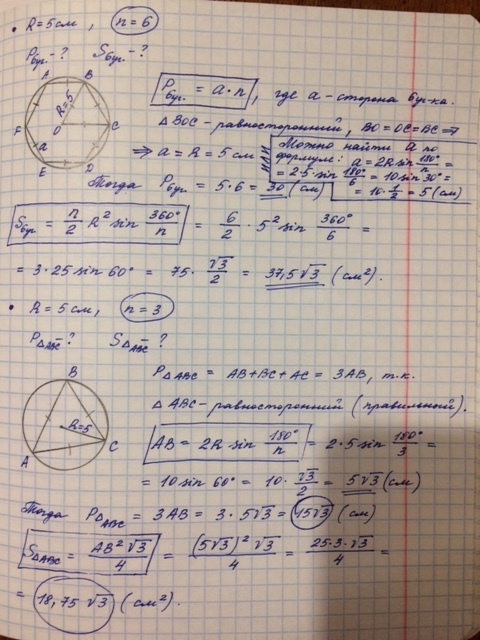 • R=5см, n=6
Pбуг.-? Sбуг-?
A B
R=5
F O C
a
E D
Pбуг. = a·n, где a-сторона буг-ка.
△BOC-равносторонний, BO=OC=BC ⇒
⇒ a=R=5 см
или
Можно найти a по
формуле: a=2R sin 180°/n =
= 2·5·sin 180°/6 = 10 sin 30° =
= 10·1/2 = 5 (см)
Тогда Pбуг. = 5·6 = 30 (см)
Sбуг. = n/2 R² sin 360°/n = 6/2 · 5² sin 360°/6 =
= 3·25 sin 60° = 75·√3/2 = 37,5√3 (см²).
• R=5см, n=3
P△ABC-? S△ABC-?
B
R=5
A C
P△ABC = AB+BC+AC = 3AB, т.к.
△ABC-равносторонний (правильный).
AB = 2R sin 180°/n = 2·5 sin 180°/3 =
= 10 sin 60° = 10·√3/2 = 5√3 (см)
Тогда P△ABC = 3AB = 3·5√3 = 15√3 (см)
S△ABC = AB²√3/4 = (5√3)²√3/4 = 25·3·√3/4 =
= 18,75√3 (см²).